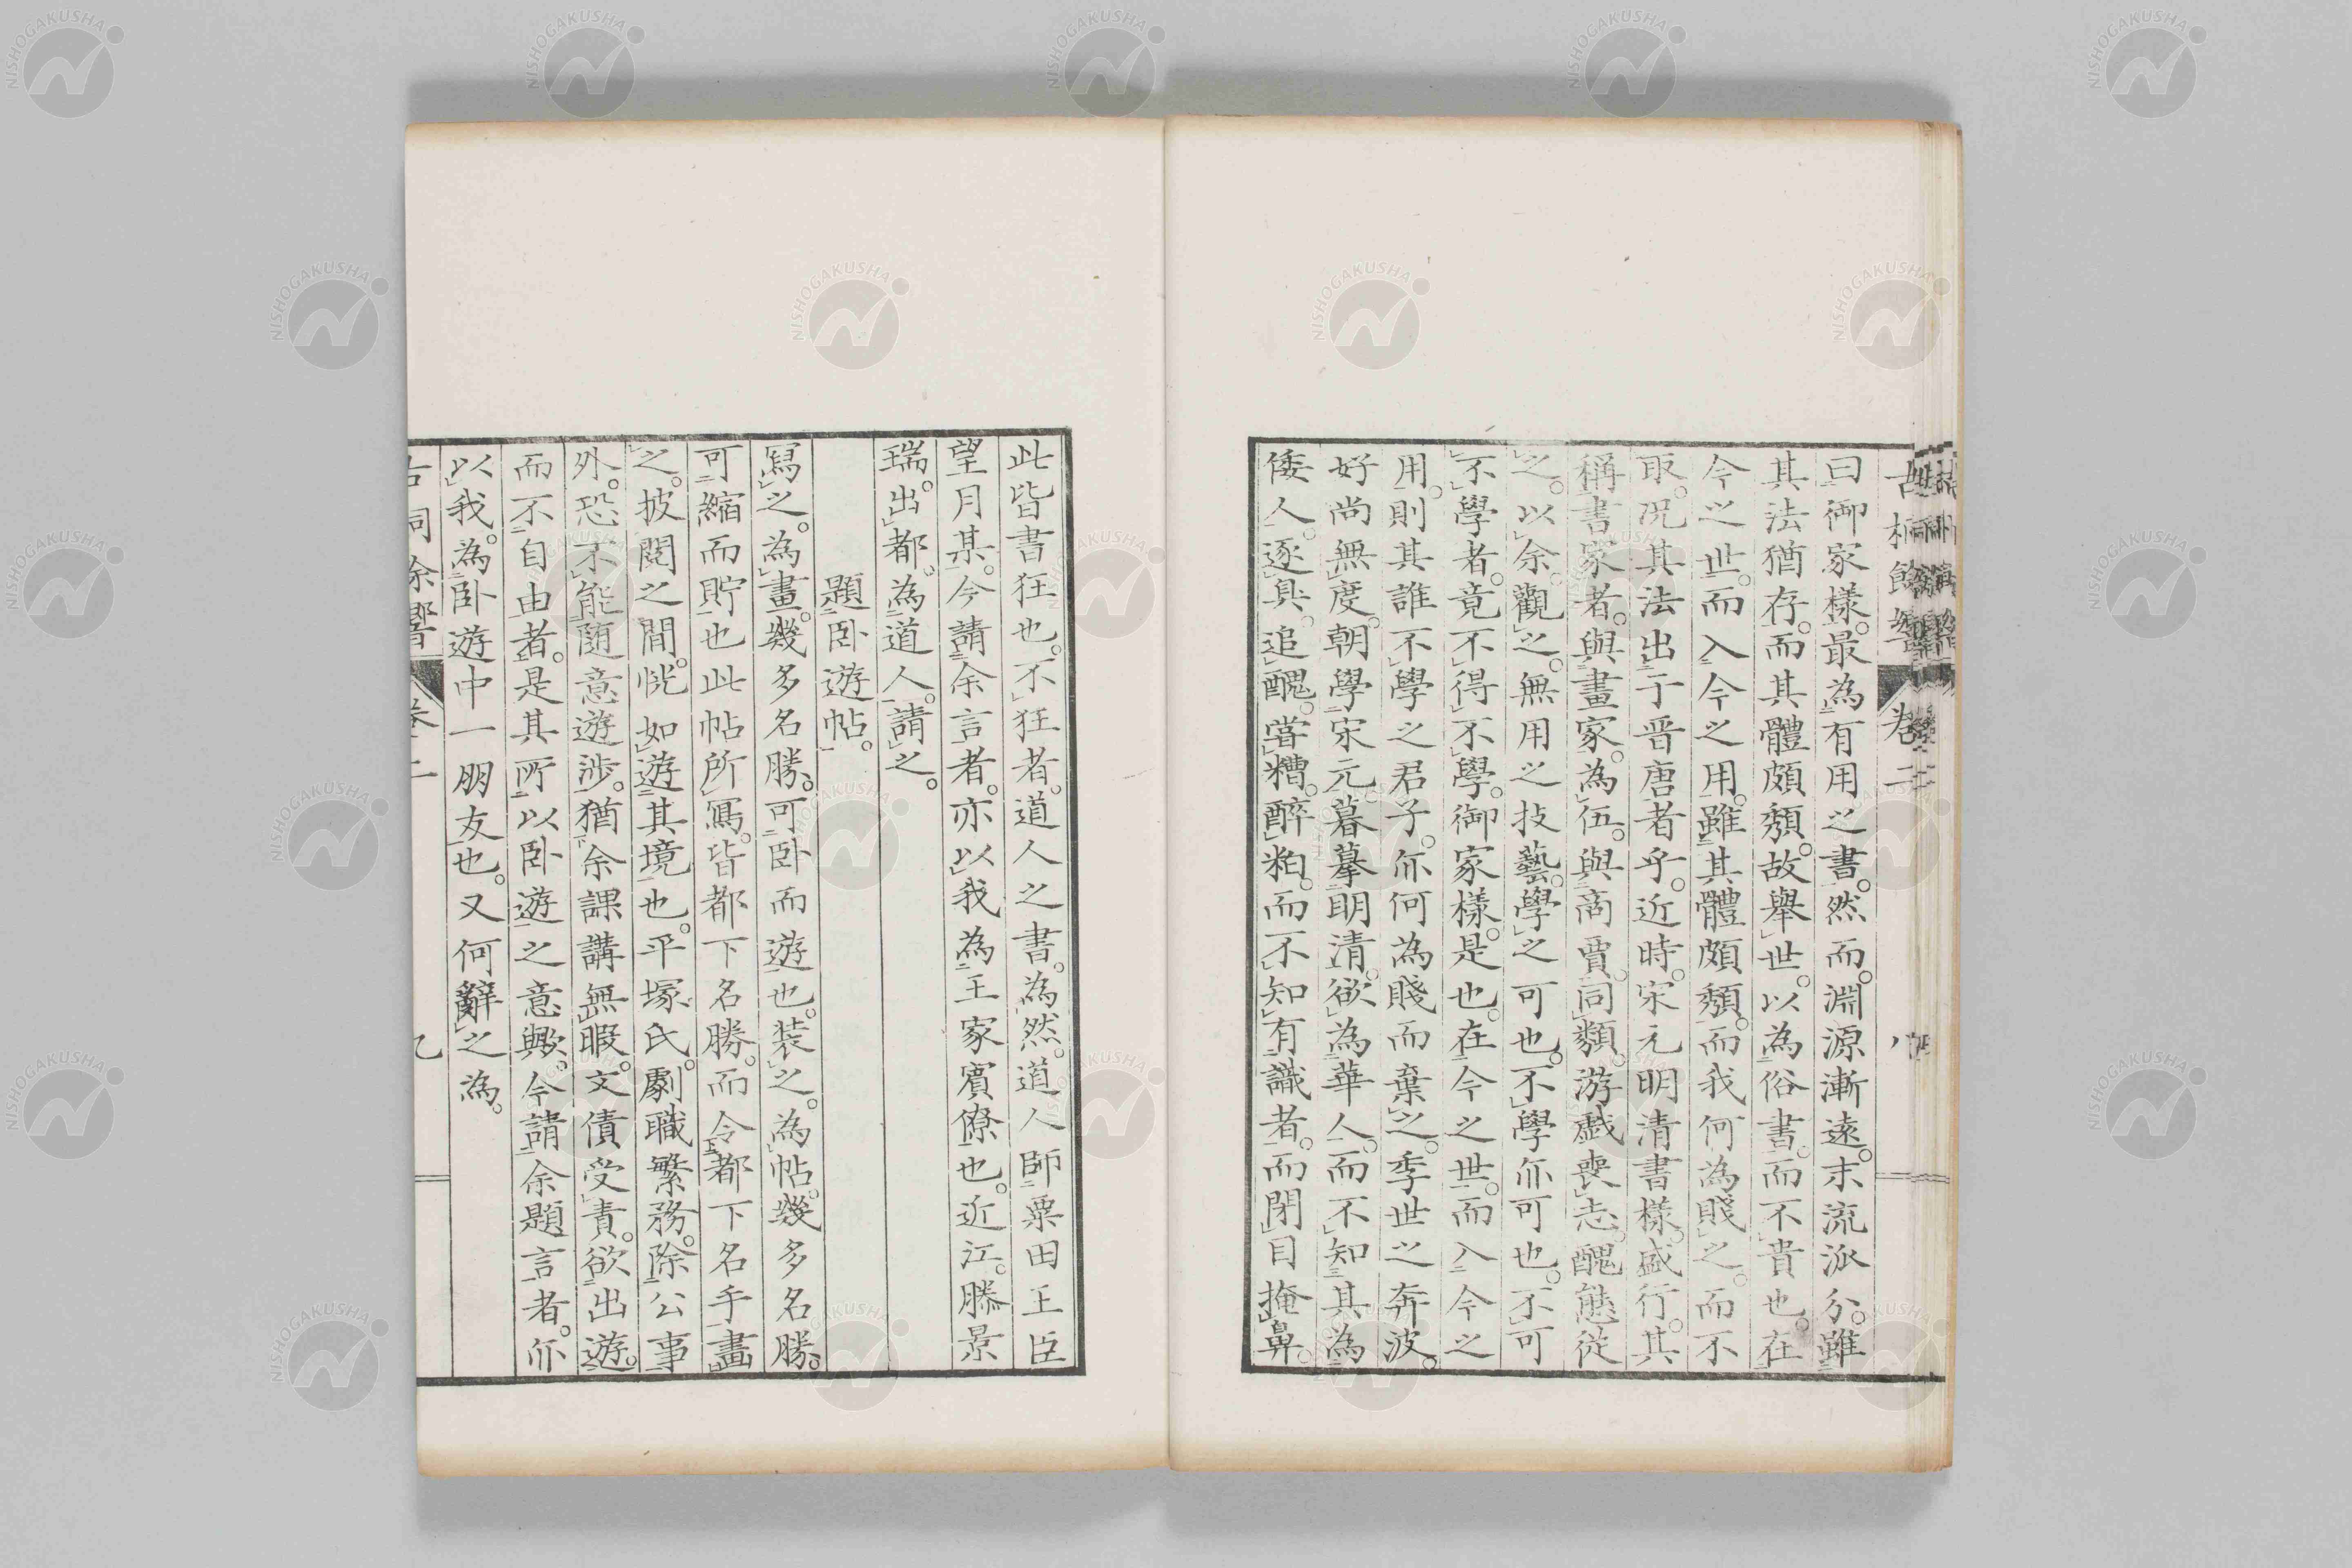 曰御家樣。最為有用之書。然而。淵源漸遠。末流派分。雖
其法猶存。而其體頗頽。故舉世。以為俗書。而不貴也。在
今之世。而入今之用。雖其體頗頽。而我何為賤之。而不
取。况其法出于晋唐者乎。近時。宋元明清書樣。盛行。其
稱書家者。與畫家。為伍。與商賈。同類。游戯喪志。醜態從
之。以余觀之。無用之技藝。學之可也。不學亦可也。不可
不學者。竟不得不學。御家樣。是也。在今之世。而入今之
用。則其誰不學之君子。亦何為賤而棄之。季世之奔波。
好尚無度。朝學宋元。暮摹明清。欲為華人。而不知其為
倭人。逐臭。追醜。嘗糟。醉粕。而不知有識者。而閉目掩鼻。
此皆書狂也。不狂者。道人之書。為然。道人師粟田王臣
望月某。今請余言者。亦以我為王家賓僚也。近江。勝景
瑞。出都。為道人。請之。
題卧遊帖。
寫之。為畫。幾多名勝。可卧而遊也。装之。為帖。幾多名勝。
可縮而貯也此帖所寫。皆都下名勝。而令都下名手畫
之。披閱之間。恍如遊其境也。平塚氏。劇職繁務。除公事
外。恐不能随意遊渉。猶余課講無暇。文債受責。欲出遊。
而不自由者。是其所以卧遊之意歟。今請余題言者。亦
以我。為卧遊中一朋友也。又何辭之為。
古桐餘響 卷二 八
卷二 九
NISHOGAKUSHA